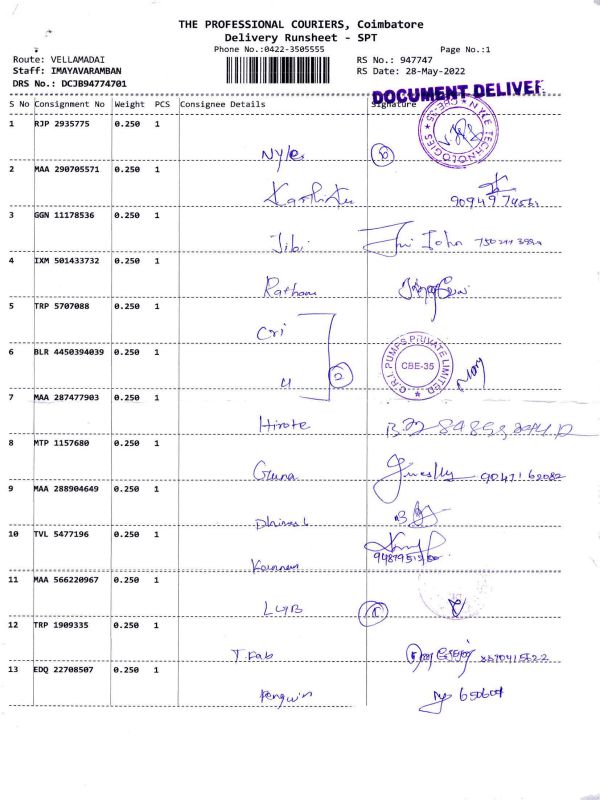 THE PROFESSIONAL COURIERS, Coimbatore
Delivery Runsheet - SPT
Phone No.:0422-3505555 Page No.:1
Route: VELLAMADAI RS No.: 947747
Staff: IMAYAVARAMBAN RS Date: 28-May-2022
DRS No.: DCJB94774701
DOCUMENT DELIVER
S No Consignment No Weight PCS Consignee Details Signature
1 RJP 2935775 0.250 1
NYLE TECHNOLOGIES CBE-35
Nyle
2 MAA 290705571 0.250 1
3 GGN 11178536 0.250 1
Jibi John
4 IXM 501433732 0.250 1
5 TRP 5707088 0.250 1
Cri
6 BLR 4450394039 0.250 1
C.R.I. PUMPS PRIVATE LIMITED
CBE-35
7 MAA 287477903 0.250 1
Hirote
8 MTP 1157680 0.250 1
Guna 9047162082
9 MAA 288904649 0.250 1
10 TVL 5477196 0.250 1
Kannan
11 MAA 566220967 0.250 1
LGB
12 TRP 1909335 0.250 1
T. Fab
13 EDQ 22708507 0.250 1
Penguin